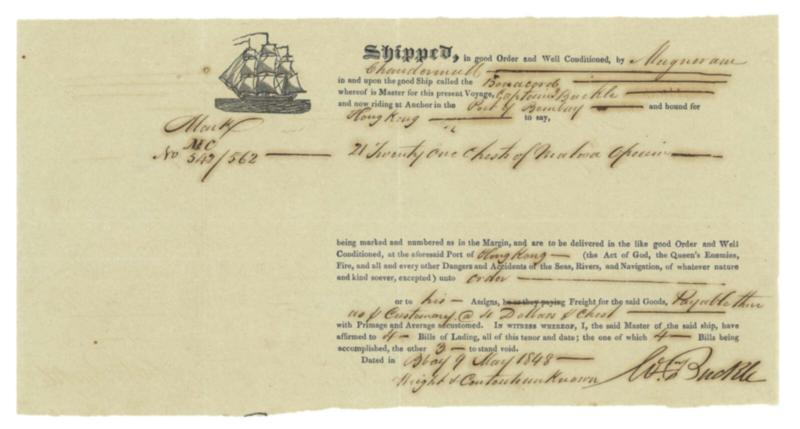 Shipped, in good Order and Well Conditioned, by Mugneram
Chaudermull
in and upon the good Ship called the Bonacord
whereof is Master for this present Voyage, Captain Buckle
and now riding at Anchor in the Port of Bombay and bound for
Hong Kong to say,
Mark
MC
No 542/562 21 Twenty One Chests of Malwa Opium
being marked and numbered as in the Margin, and are to be delivered in the like good Order and Well
Conditioned, at the aforesaid Port of Hong Kong (the Act of God, the Queen's Enemies,
Fire, and all and every other Dangers and Accidents of the Seas, Rivers, and Navigation, of whatever nature
and kind soever, excepted) unto order
or to his Assigns, he or they paying Freight for the said Goods, Payable there
as p Customary @ 4 Dollars p Chest
with Primage and Average accustomed. In witness whereof, I, the said Master of the said ship, have
affirmed to 4 Bills of Lading, all of this tenor and date; the one of which 4 Bills being
accomplished, the other 3 to stand void.
Dated in Bbay 9 May 1848
Weight & Contents unknown Wm Buckle